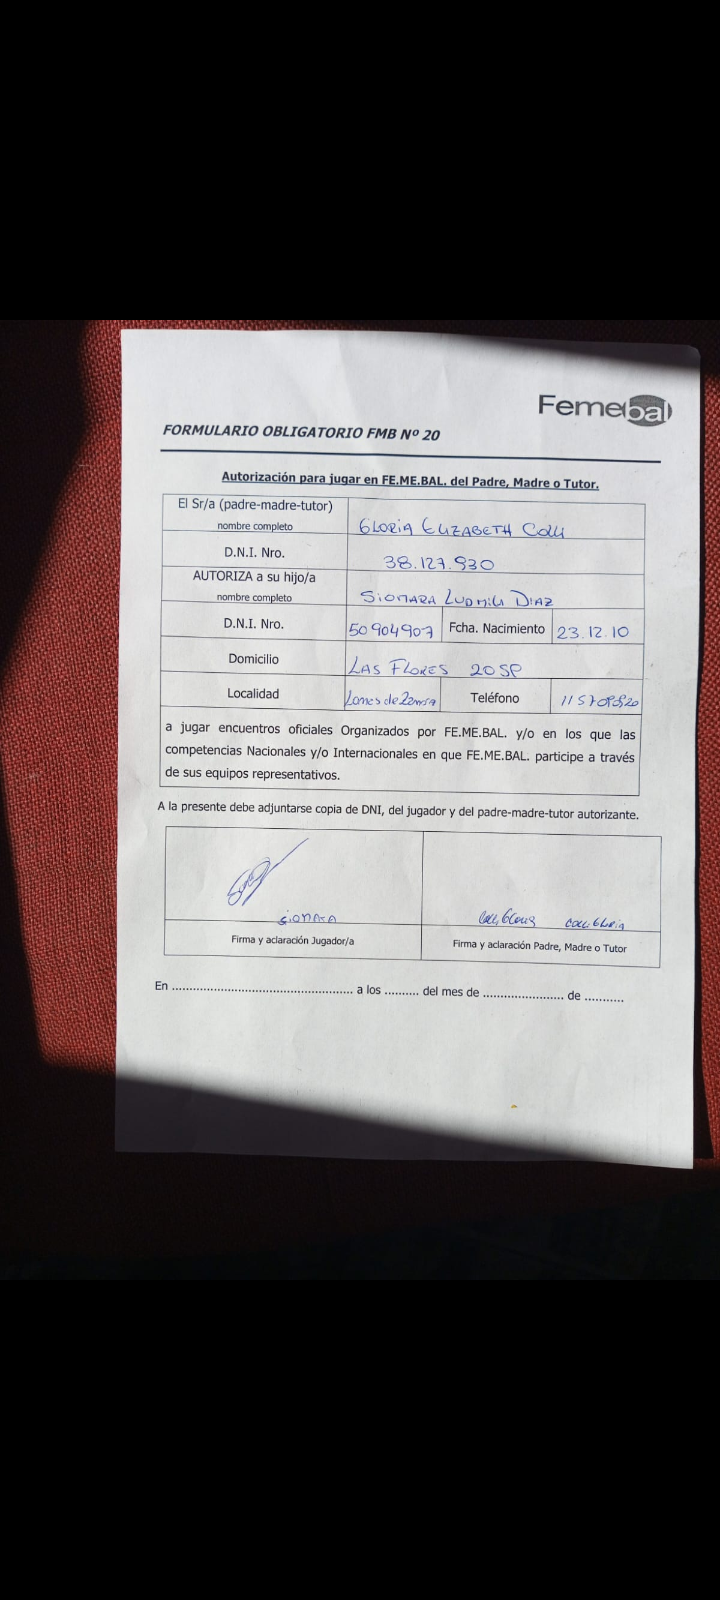 Femebal
FORMULARIO OBLIGATORIO FMB Nº 20
Autorización para jugar en FE.ME.BAL. del Padre, Madre o Tutor.
El Sr/a (padre-madre-tutor)
nombre completo
GLORIA ELIZABETH COLLI
D.N.I. Nro.
38.127.930
AUTORIZA a su hijo/a
nombre completo
SIOMARA LUDMILA DIAZ
D.N.I. Nro.
50904907
Fcha. Nacimiento
23.12.10
Domicilio
LAS FLORES
Localidad
Lomas de Zamora
Teléfono
a jugar encuentros oficiales Organizados por FE.ME.BAL. y/o en los que las
competencias Nacionales y/o Internacionales en que FE.ME.BAL. participe a través
de sus equipos representativos.
A la presente debe adjuntarse copia de DNI, del jugador y del padre-madre-tutor autorizante.
SIOMARA
Colli Gloria Colli Gloria
Firma y aclaración Jugador/a
Firma y aclaración Padre, Madre o Tutor
En .................................................... a los .......... del mes de ....................... de ...........